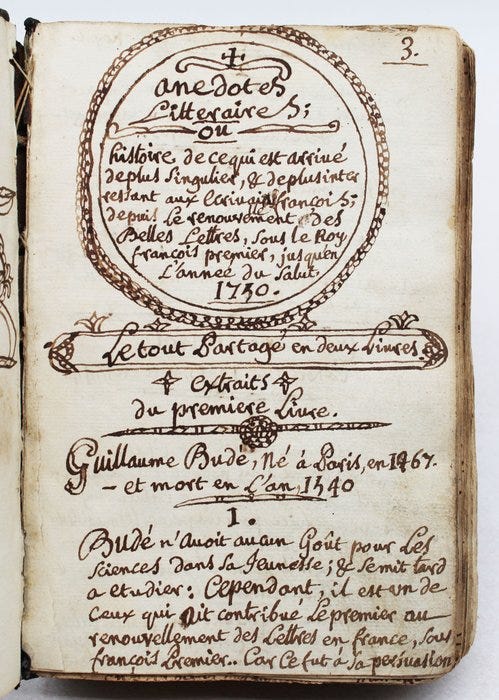 3.
anedotes
Litteraires;
ou
histoire de ce qui est arrivé
de plus singulier, & de plus inte
ressant aux Ecrivains françois;
depuis le renouvement des
Belles Lettres, sous le Roy
françois premier, jusqu'en
L'année du Salut,
1750.
Le tout Partagé en deux Livres
extraits
du premiere Livre.
Guillaume Budé, Né à Paris, en 1467.
- et mort en L'an, 1540
I.
Budé n'avoit aucun Goût pour Les
sciences dans sa Jeunesse; & se mit tard
a etudier: Cependant, il est un de
ceux qui ait contribué Le premier au
renouvellement des Lettres en france, sous
françois Premier.. Car Ce fut à sa persuasion